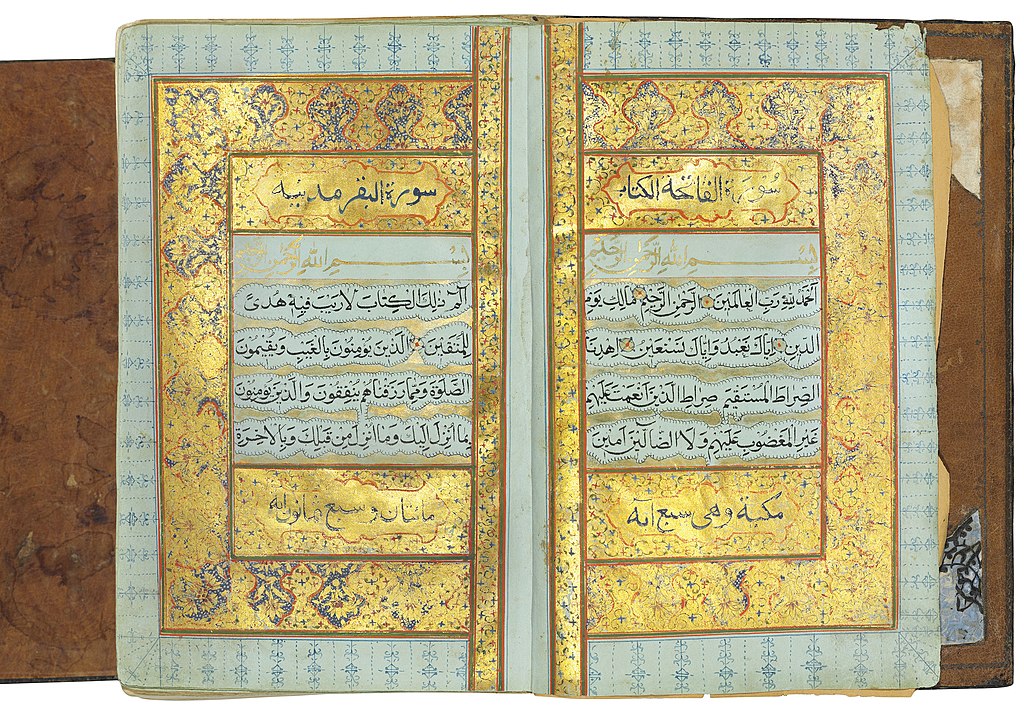 سُورَة الفاتحة الكتاب
بِسْمِ اللهِ الرَّحْمٰنِ الرَّحِيمِ
اَلْحَمْدُ لِلّٰهِ رَبِّ الْعَالَمِينَ الرَّحْمٰنِ الرَّحِيمِ مَالِكِ يَوْمِ
الدِّينِ اِيَّاكَ نَعْبُدُ وَاِيَّاكَ نَسْتَعِينُ اِهْدِنَا
الصِّرَاطَ الْمُسْتَقِيمَ صِرَاطَ الَّذِينَ اَنْعَمْتَ عَلَيْهِمْ
غَيْرِ الْمَغْضُوبِ عَلَيْهِمْ وَلَا الضَّالِّينَ آمِينَ
مكية وهى سبع آية
سورة البقر مدنيه
بِسْمِ اللهِ الرَّحْمٰنِ الرَّحِيمِ
الٓمٓ ذٰلِكَ الْكِتَابُ لَا رَيْبَ فِيهِ هُدًى
لِلْمُتَّقِينَ الَّذِينَ يُؤْمِنُونَ بِالْغَيْبِ وَيُقِيمُونَ
الصَّلٰوةَ وَمِمَّا رَزَقْنَاهُمْ يُنْفِقُونَ وَالَّذِينَ يُؤْمِنُونَ
بِمَا اُنْزِلَ اِلَيْكَ وَمَا اُنْزِلَ مِنْ قَبْلِكَ وَبِالْاٰخِرَةِ
مائتان و سبع ثمانون آيه